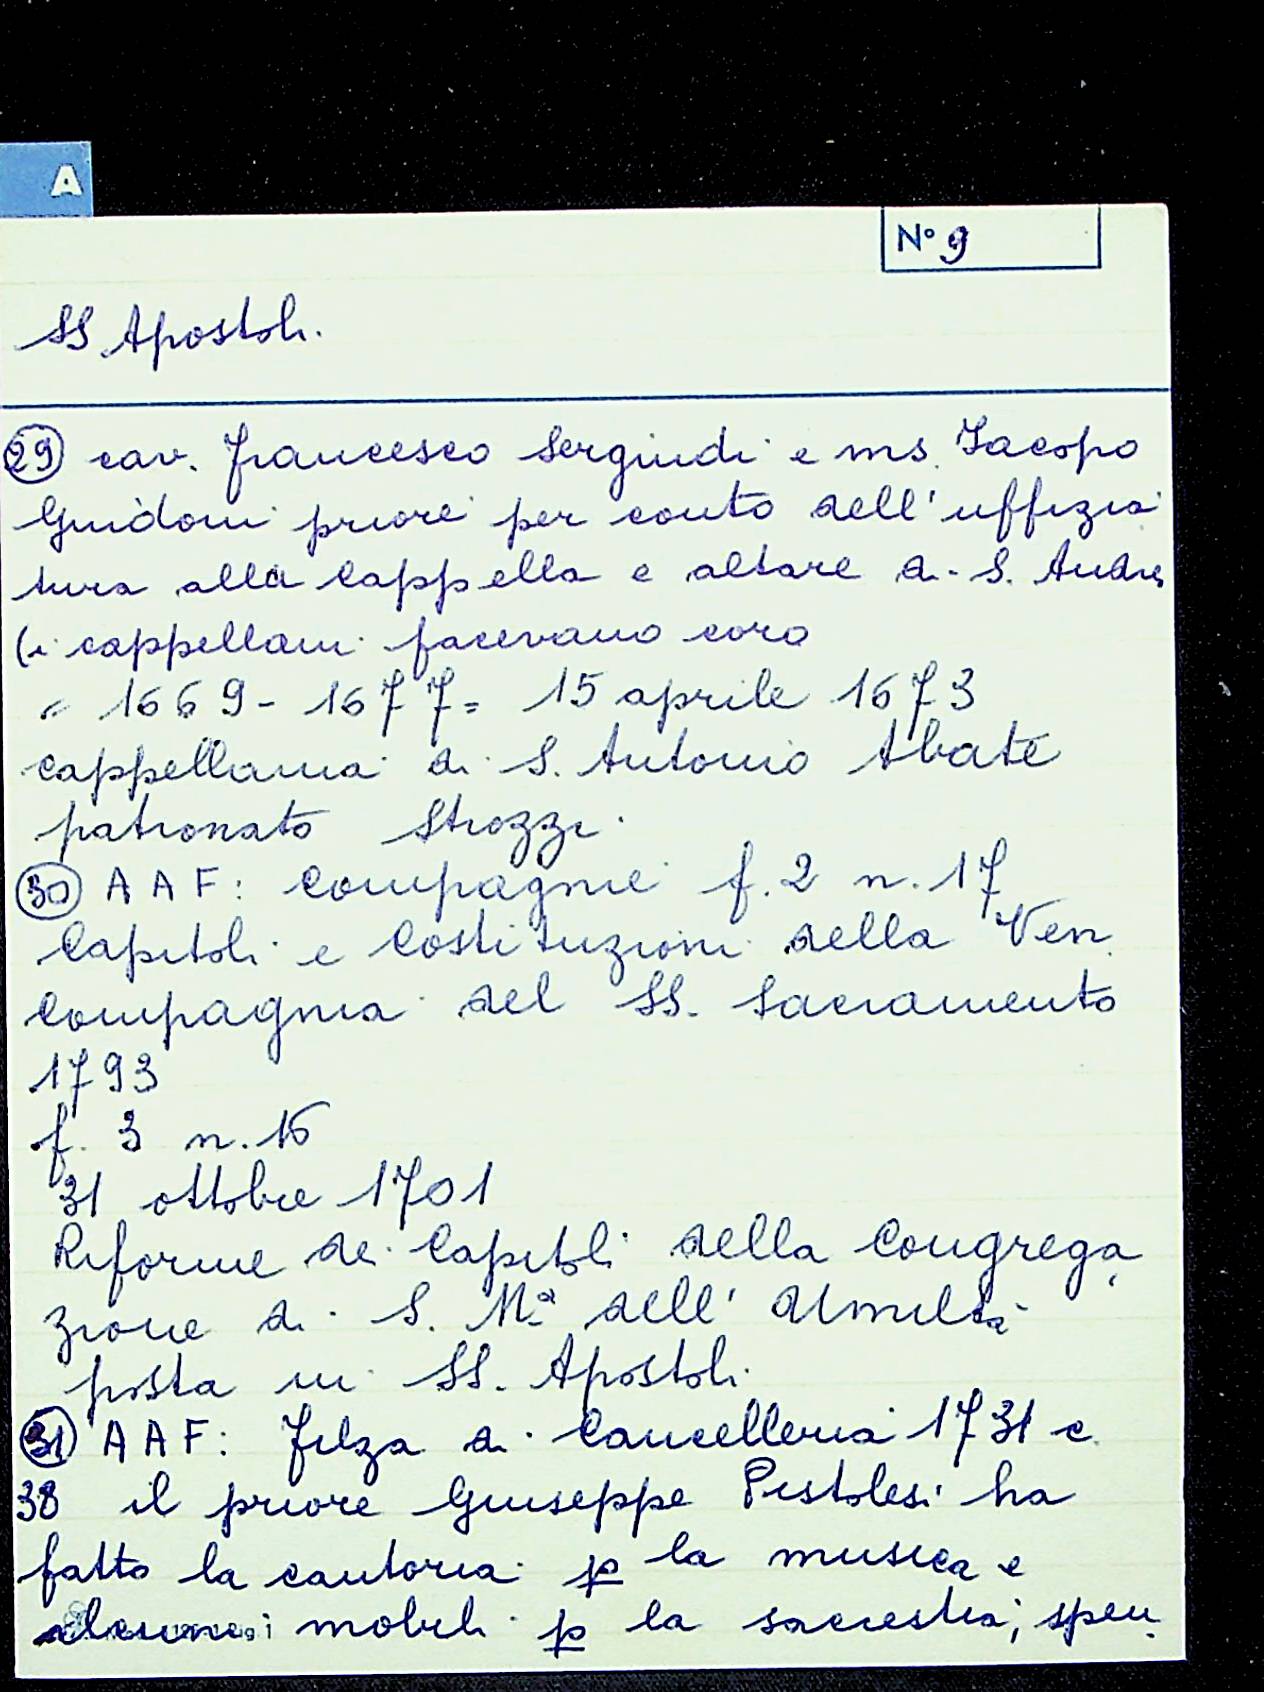 A
N° 9
SS. Apostoli
29 cav. Francesco Serguidi e ms. Iacopo
Guidoni priore per conto dell'uffizia
tura alla cappella e altare di S. Andrea
(i cappellani facevano coro
= 1669 - 1677 = 15 aprile 1673
cappellania di S. Antonio Abate
patronato Strozzi.
30 AAF: Compagnie f. 2 n. 17
Capitoli e Costituzioni della Ven.
Compagnia del SS. Sacramento
1793
f. 3 n. 16
31 ottobre 1701
Riforme de Capitoli della Congrega
zione di S. Mª dell'Umiltà
posta in SS. Apostoli
31 AAF: Filza di Cancelleria 1731 c.
38 il priore Giuseppe Pistolesi ha
fatto la cantoria p la musica e
alcuni mobili p la sacrestia; spen